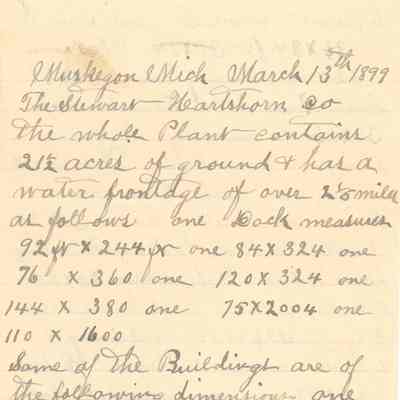 Muskegon Mich March 13th 1899
The Stewart Hartshorn Co
the whole Plant contains
21½ acres of ground & has a
water frontage of over 2½ miles
as follows one Dock measures
92 ft x 244 ft one 84 x 324 one
76 x 360 one 120 x 324 one
144 x 380 one 75 x 2004 one
110 x 1600
Some of the Buildings are of
the following dimensions one